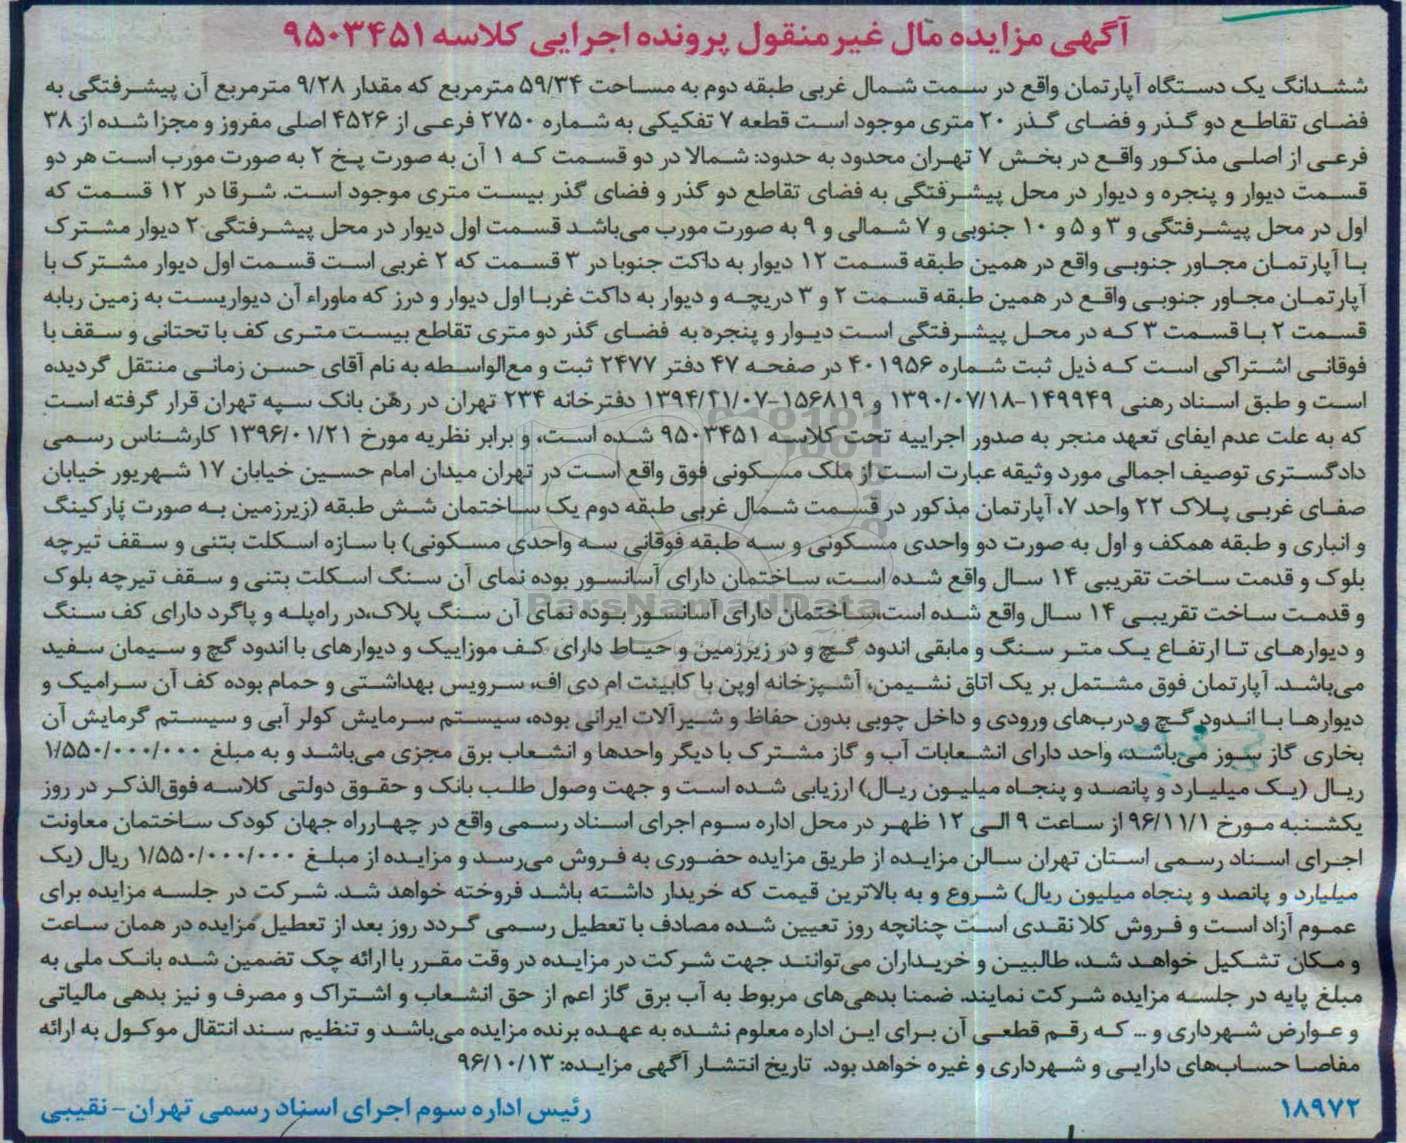 آگهی مزایده مال غیرمنقول پرونده اجرایی کلاسه ۹۵۰۳۴۵۱
ششدانگ یک دستگاه آپارتمان واقع در سمت شمال غربی طبقه دوم به مساحت ۵۹/۳۴ مترمربع که مقدار ۹/۲۸ مترمربع آن پیشرفتگی به
فضای تقاطع دو گذر و فضای گذر ۲۰ متری موجود است قطعه ۷ تفکیکی به شماره ۲۷۵۰ فرعی از ۴۵۲۶ اصلی مفروز و مجزا شده از ۳۸
فرعی از اصلی مذکور واقع در بخش ۷ تهران محدود به حدود: شمالا در دو قسمت که ۱ آن به صورت پخ ۲ به صورت مورب است هر دو
قسمت دیوار و پنجره و دیوار در محل پیشرفتگی به فضای تقاطع دو گذر و فضای گذر بیست متری موجود است. شرقا در ۱۲ قسمت که
اول در محل پیشرفتگی و ۳ و ۵ و ۱۰ جنوبی و ۷ شمالی و ۹ به صورت مورب می‌باشد قسمت اول دیوار در محل پیشرفتگی ۲ دیوار مشترک
با آپارتمان مجاور جنوبی واقع در همین طبقه قسمت ۱۲ دیوار به داکت جنوبا در ۳ قسمت که ۲ غربی است قسمت اول دیوار مشترک با
آپارتمان مجاور جنوبی واقع در همین طبقه قسمت ۲ و ۳ دریچه و دیوار به داکت غربا اول دیوار و درز که ماوراء آن دیواریست به زمین ربابه
قسمت ۲ با قسمت ۳ که در محل پیشرفتگی است دیوار و پنجره به فضای گذر دو متری تقاطع بیست متری کف با تحتانی و سقف با
فوقانی اشتراکی است که ذیل ثبت شماره ۴۰۱۹۵۶ در صفحه ۴۷ دفتر ۲۴۷۷ ثبت و مع‌الواسطه به نام آقای حسن زمانی منتقل گردیده
است و طبق اسناد رهنی ۱۴۹۹۴۹-۱۳۹۰/۰۷/۱۸ و ۱۵۶۸۱۹-۱۳۹۴/۲۱/۰۷ دفترخانه ۲۳۴ تهران در رهن بانک سپه تهران قرار گرفته است
که به علت عدم ایفای تعهد منجر به صدور اجراییه تحت کلاسه ۹۵۰۳۴۵۱ شده است، و برابر نظریه مورخ ۱۳۹۶/۰۱/۲۱ کارشناس رسمی
دادگستری توصیف اجمالی مورد وثیقه عبارت است از ملک مسکونی فوق واقع است در تهران میدان امام حسین خیابان ۱۷ شهریور خیابان
صفای غربی پلاک ۲۲ واحد ۷، آپارتمان مذکور در قسمت شمال غربی طبقه دوم یک ساختمان شش طبقه (زیرزمین به صورت پارکینگ
و انباری و طبقه همکف و اول به صورت دو واحدی مسکونی و سه طبقه فوقانی سه واحدی مسکونی) با سازه اسکلت بتنی و سقف تیرچه
بلوک و قدمت ساخت تقریبی ۱۴ سال واقع شده است، ساختمان دارای آسانسور بوده نمای آن سنگ اسکلت بتنی و سقف تیرچه بلوک
و قدمت ساخت تقریبی ۱۴ سال واقع شده است،ساختمان دارای آسانسور بوده نمای آن سنگ پلاک،در راه‌پله و پاگرد دارای کف سنگ
و دیوارهای تا ارتفاع یک متر سنگ و مابقی اندود گچ و در زیرزمین و حیاط دارای کف موزاییک و دیوارهای با اندود گچ و سیمان سفید
می‌باشد. آپارتمان فوق مشتمل بر یک اتاق نشیمن، آشپزخانه اوپن با کابینت ام دی اف، سرویس بهداشتی و حمام بوده کف آن سرامیک و
دیوارها با اندود گچ و درب‌های ورودی و داخل چوبی بدون حفاظ و شیرآلات ایرانی بوده، سیستم سرمایش کولر آبی و سیستم گرمایش آن
بخاری گاز سوز می‌باشد، واحد دارای انشعابات آب و گاز مشترک با دیگر واحدها و انشعاب برق مجزی می‌باشد و به مبلغ ۱/۵۵۰/۰۰۰/۰۰۰
ریال (یک میلیارد و پانصد و پنجاه میلیون ریال) ارزیابی شده است و جهت وصول طلب بانک و حقوق دولتی کلاسه فوق‌الذکر در روز
یکشنبه مورخ ۹۶/۱۱/۱ از ساعت ۹ الی ۱۲ ظهر در محل اداره سوم اجرای اسناد رسمی واقع در چهارراه جهان کودک ساختمان معاونت
اجرای اسناد رسمی استان تهران سالن مزایده از طریق مزایده حضوری به فروش می‌رسد و مزایده از مبلغ ۱/۵۵۰/۰۰۰/۰۰۰ ریال (یک
میلیارد و پانصد و پنجاه میلیون ریال) شروع و به بالاترین قیمت که خریدار داشته باشد فروخته خواهد شد. شرکت در جلسه مزایده برای
عموم آزاد است و فروش کلا نقدی است چنانچه روز تعیین شده مصادف با تعطیل رسمی گردد روز بعد از تعطیل مزایده در همان ساعت
و مکان تشکیل خواهد شد، طالبین و خریداران می‌توانند جهت شرکت در مزایده در وقت مقرر با ارائه چک تضمین شده بانک ملی به
مبلغ پایه در جلسه مزایده شرکت نمایند. ضمنا بدهی‌های مربوط به آب برق گاز اعم از حق انشعاب و اشتراک و مصرف و نیز بدهی مالیاتی
و عوارض شهرداری و ... که رقم قطعی آن برای این اداره معلوم نشده به عهده برنده مزایده می‌باشد و تنظیم سند انتقال موکول به ارائه
مفاصا حساب‌های دارایی و شهرداری و غیره خواهد بود. تاریخ انتشار آگهی مزایده: ۹۶/۱۰/۱۳
۱۸۹۷۲ رئیس اداره سوم اجرای اسناد رسمی تهران- نقیبی
ParsNamadData